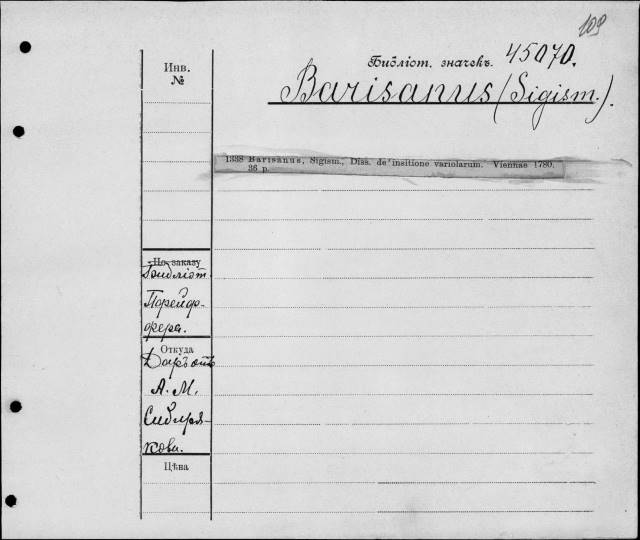 109
Библіот. значекъ. 45070.
Barisanus (Sigism.).
Инв.
№
1338 Barisanus, Sigism., Diss. de insitione variolarum. Viennae 1780.
36 p.
По заказу
Библіот.
Порейф-
фера.
Откуда
Даръ отъ
А. М.
Сибиря-
кова.
Цѣна